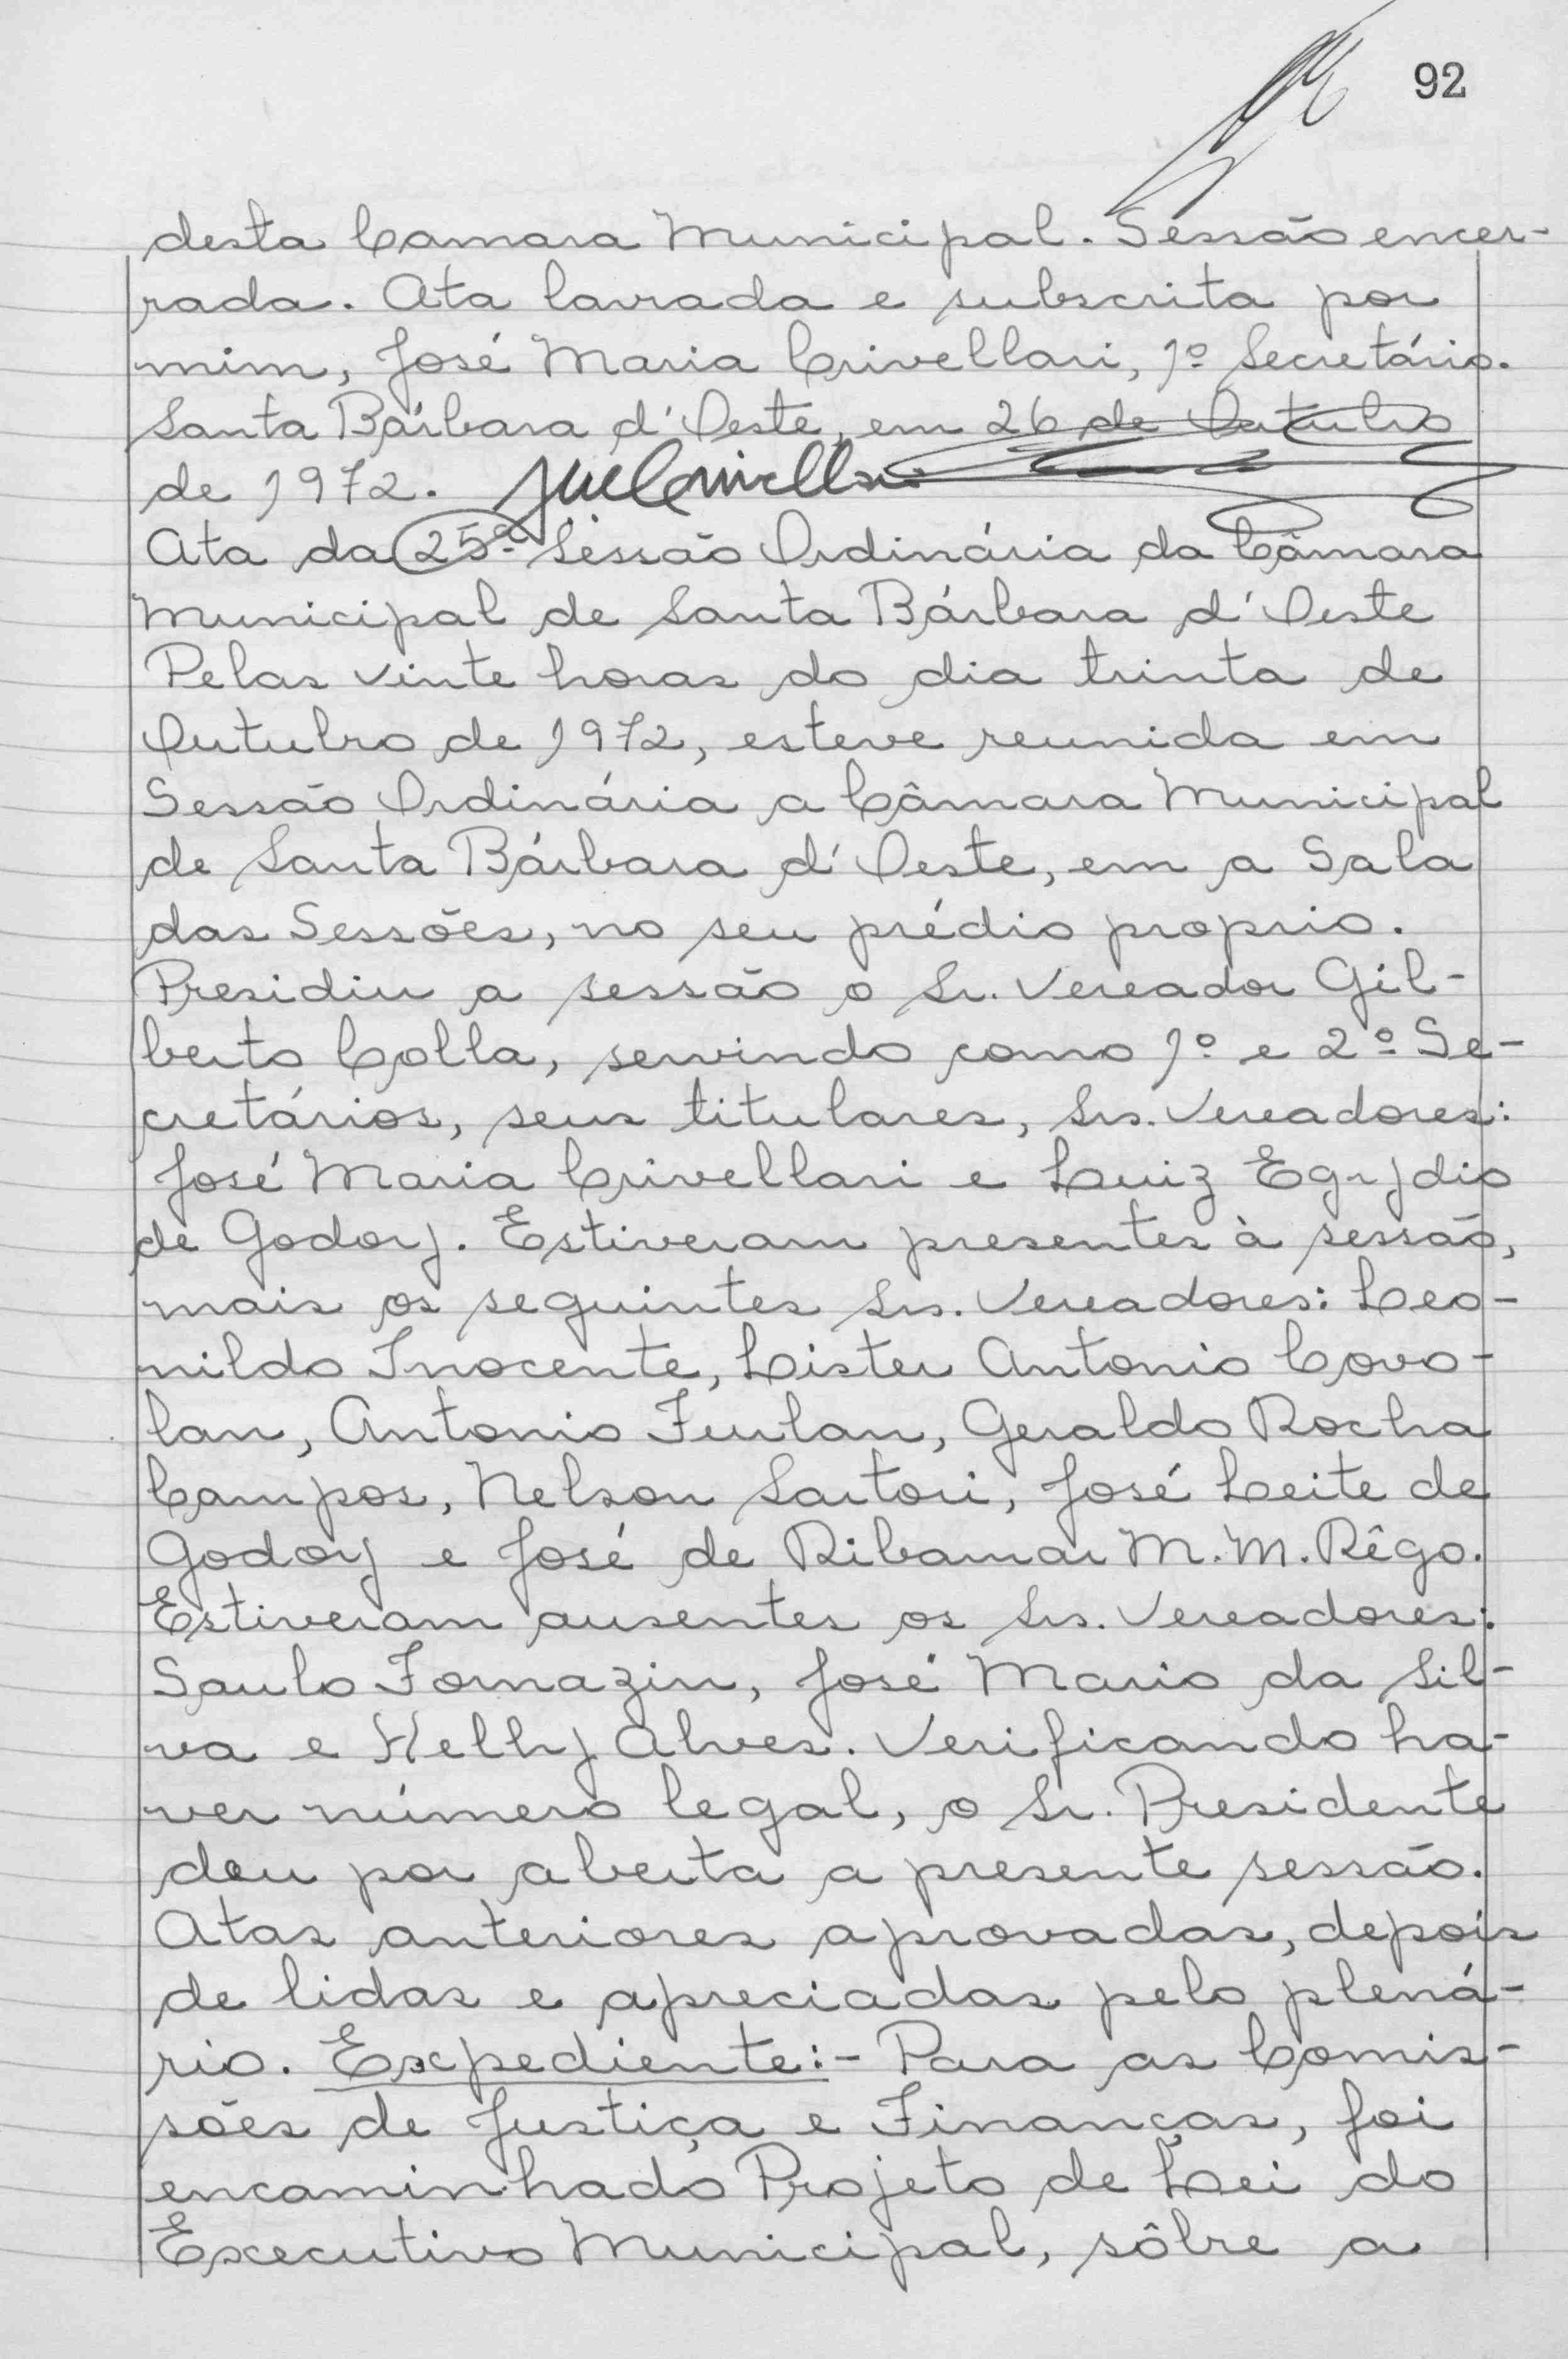 92
desta Camara Municipal. Sessão encer-
rada. Ata lavrada e subscrita por
mim, José Maria Crivellari, 1º Secretário.
Santa Bárbara d'Oeste, em 26 de Outubro
de 1972.
Ata da 25ª Sessão Ordinária da Câmara
Municipal de Santa Bárbara d'Oeste
Pelas vinte horas do dia trinta de
Outubro de 1972, esteve reunida em
Sessão Ordinária a Câmara Municipal
de Santa Bárbara d'Oeste, em a Sala
das Sessões, no seu prédio proprio.
Presidiu a sessão o Sr. Vereador Gil-
berto Colla, servindo como 1º e 2º Se-
cretários, seus titulares, Srs. Vereadores:
José Maria Crivellari e Luiz Egydio
de Godoy. Estiveram presentes à sessão,
mais os seguintes Srs. Vereadores: Leo-
nildo Inocente, Lister Antonio Covo-
lan, Antonio Furlan, Geraldo Rocha
Campos, Nelson Sartori, José Leite de
Godoy e José de Ribamar M. M. Rêgo.
Estiveram ausentes os Srs. Vereadores:
Saulo Fornazin, José Mario da Sil-
va e Helly Alves. Verificando ha-
ver número legal, o Sr. Presidente
deu por aberta a presente sessão.
Atas anteriores aprovadas, depois
de lidas e apreciadas pelo plená-
rio. Expediente:- Para as Comis-
sões de Justiça e Finanças, foi
encaminhado Projeto de Lei do
Executivo Municipal, sôbre a